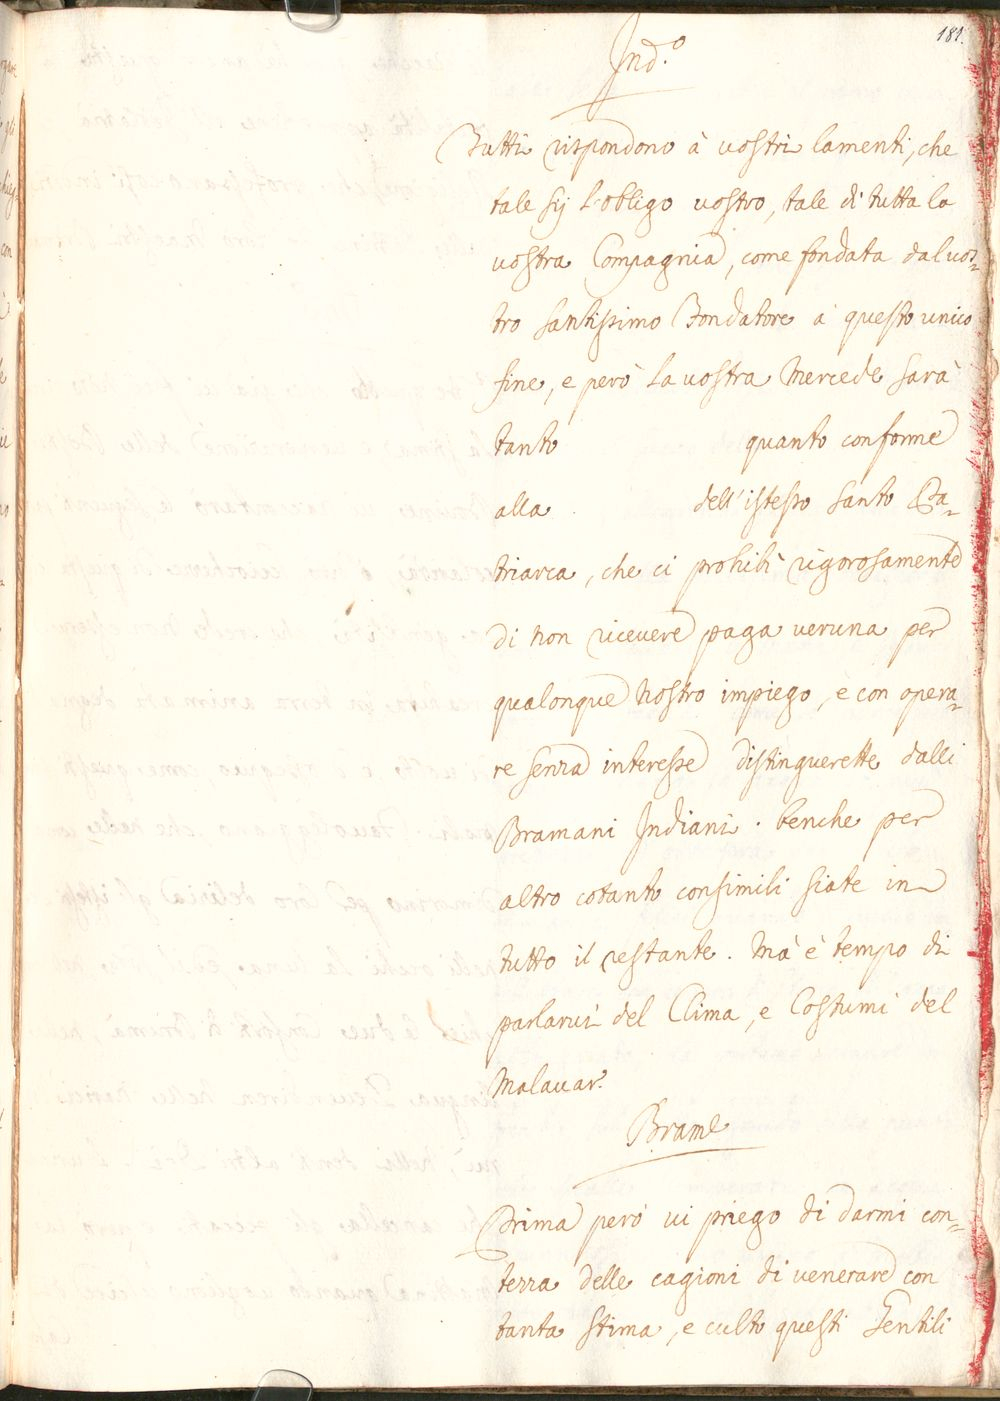 181.
Ind.º
Tutti rispondono à vostri lamenti, che
tale sij l'obligo vostro, tale di tutta la
vostra Compagnia, come fondata dal vos-
tro santissimo Fondatore a questo unico
fine, e però la vostra Mercede sarà
tanto quanto conforme
alla dell'istesso Santo Pa-
triarca, che ci prohibì rigorosamente
di non ricevere paga veruna per
qualonque nostro impiego, e con opera-
re senza interesse distinguerette dalli
Bramani Indiani. benche per
altro cotanto consimili siate in
tutto il restante. Mà è tempo di
parlarvi del Clima, e Costumi del
Malavar.
Brame
Prima però vi priego di darmi con-
tezza delle cagioni di venerare con
tanta stima, e culto questi Gentili